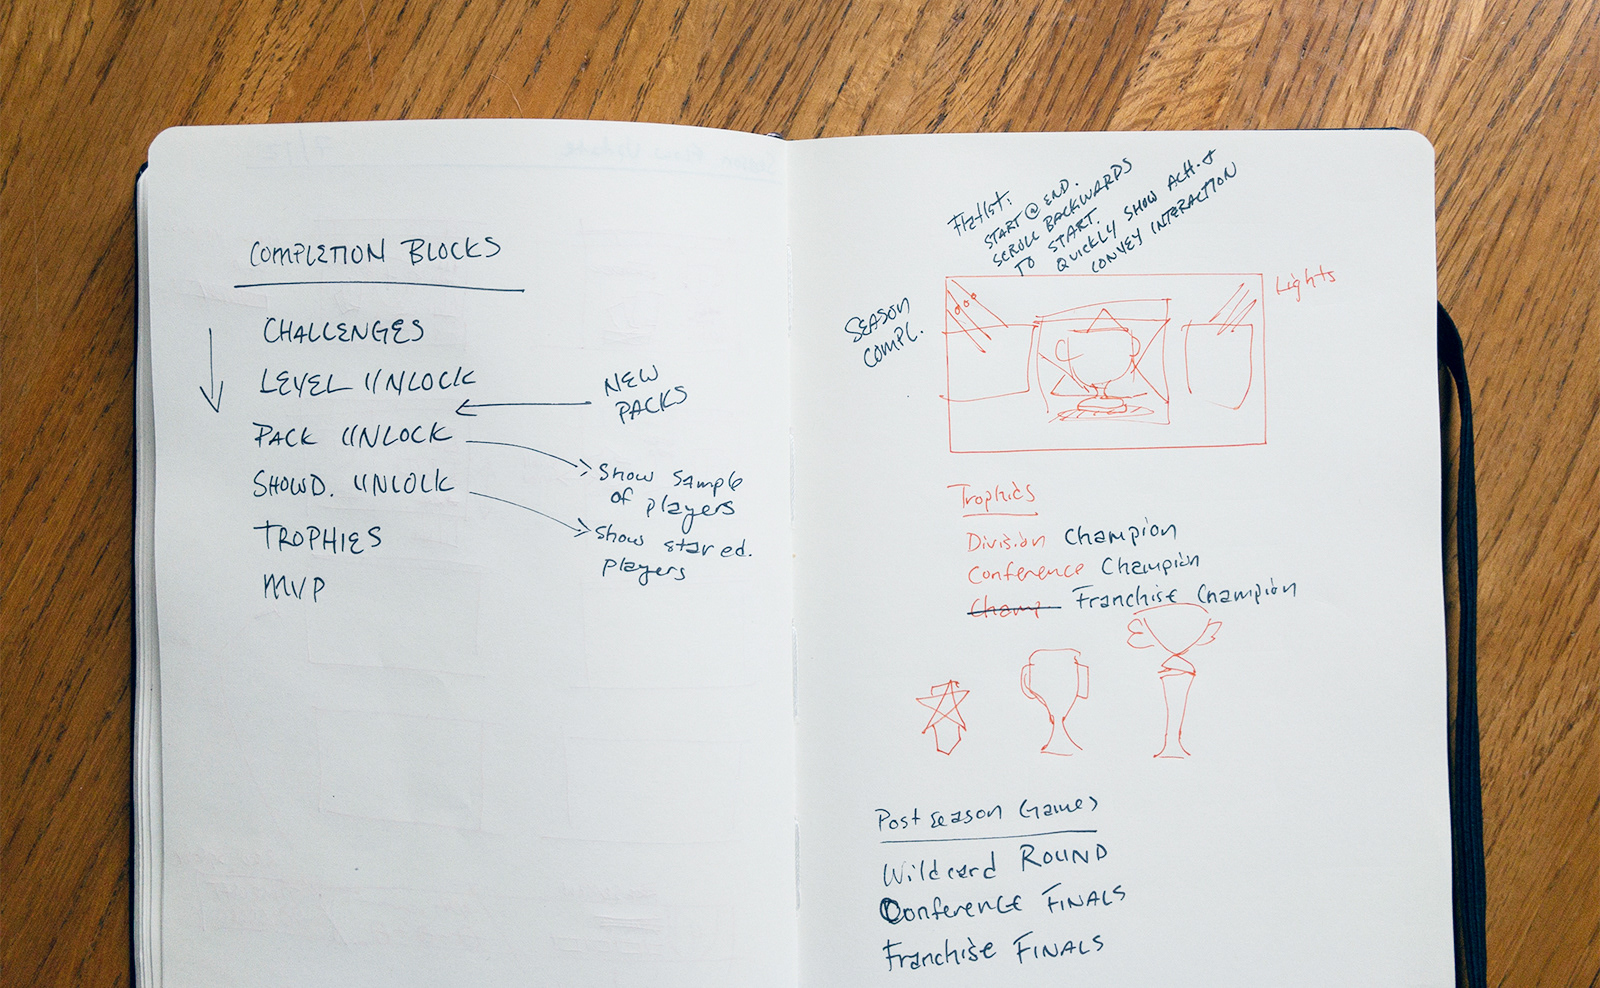 COMPLETION BLOCKS
CHALLENGES
LEVEL UNLOCK
NEW
PACKS
PACK UNLOCK
Show sample
of players
SHOWD. UNLOCK
Show stared.
players
TROPHIES
MVP
Flatlist:
START @ END.
SCROLL BACKWARDS
TO START.
QUICKLY SHOW ACH. &
CONVEY INTERACTION
SEASON
COMPL.
Lights
Trophies
Division Champion
Conference Champion
Champ Franchise Champion
Post season Games
Wildcard ROUND
Conference FINALS
Franchise FINALS